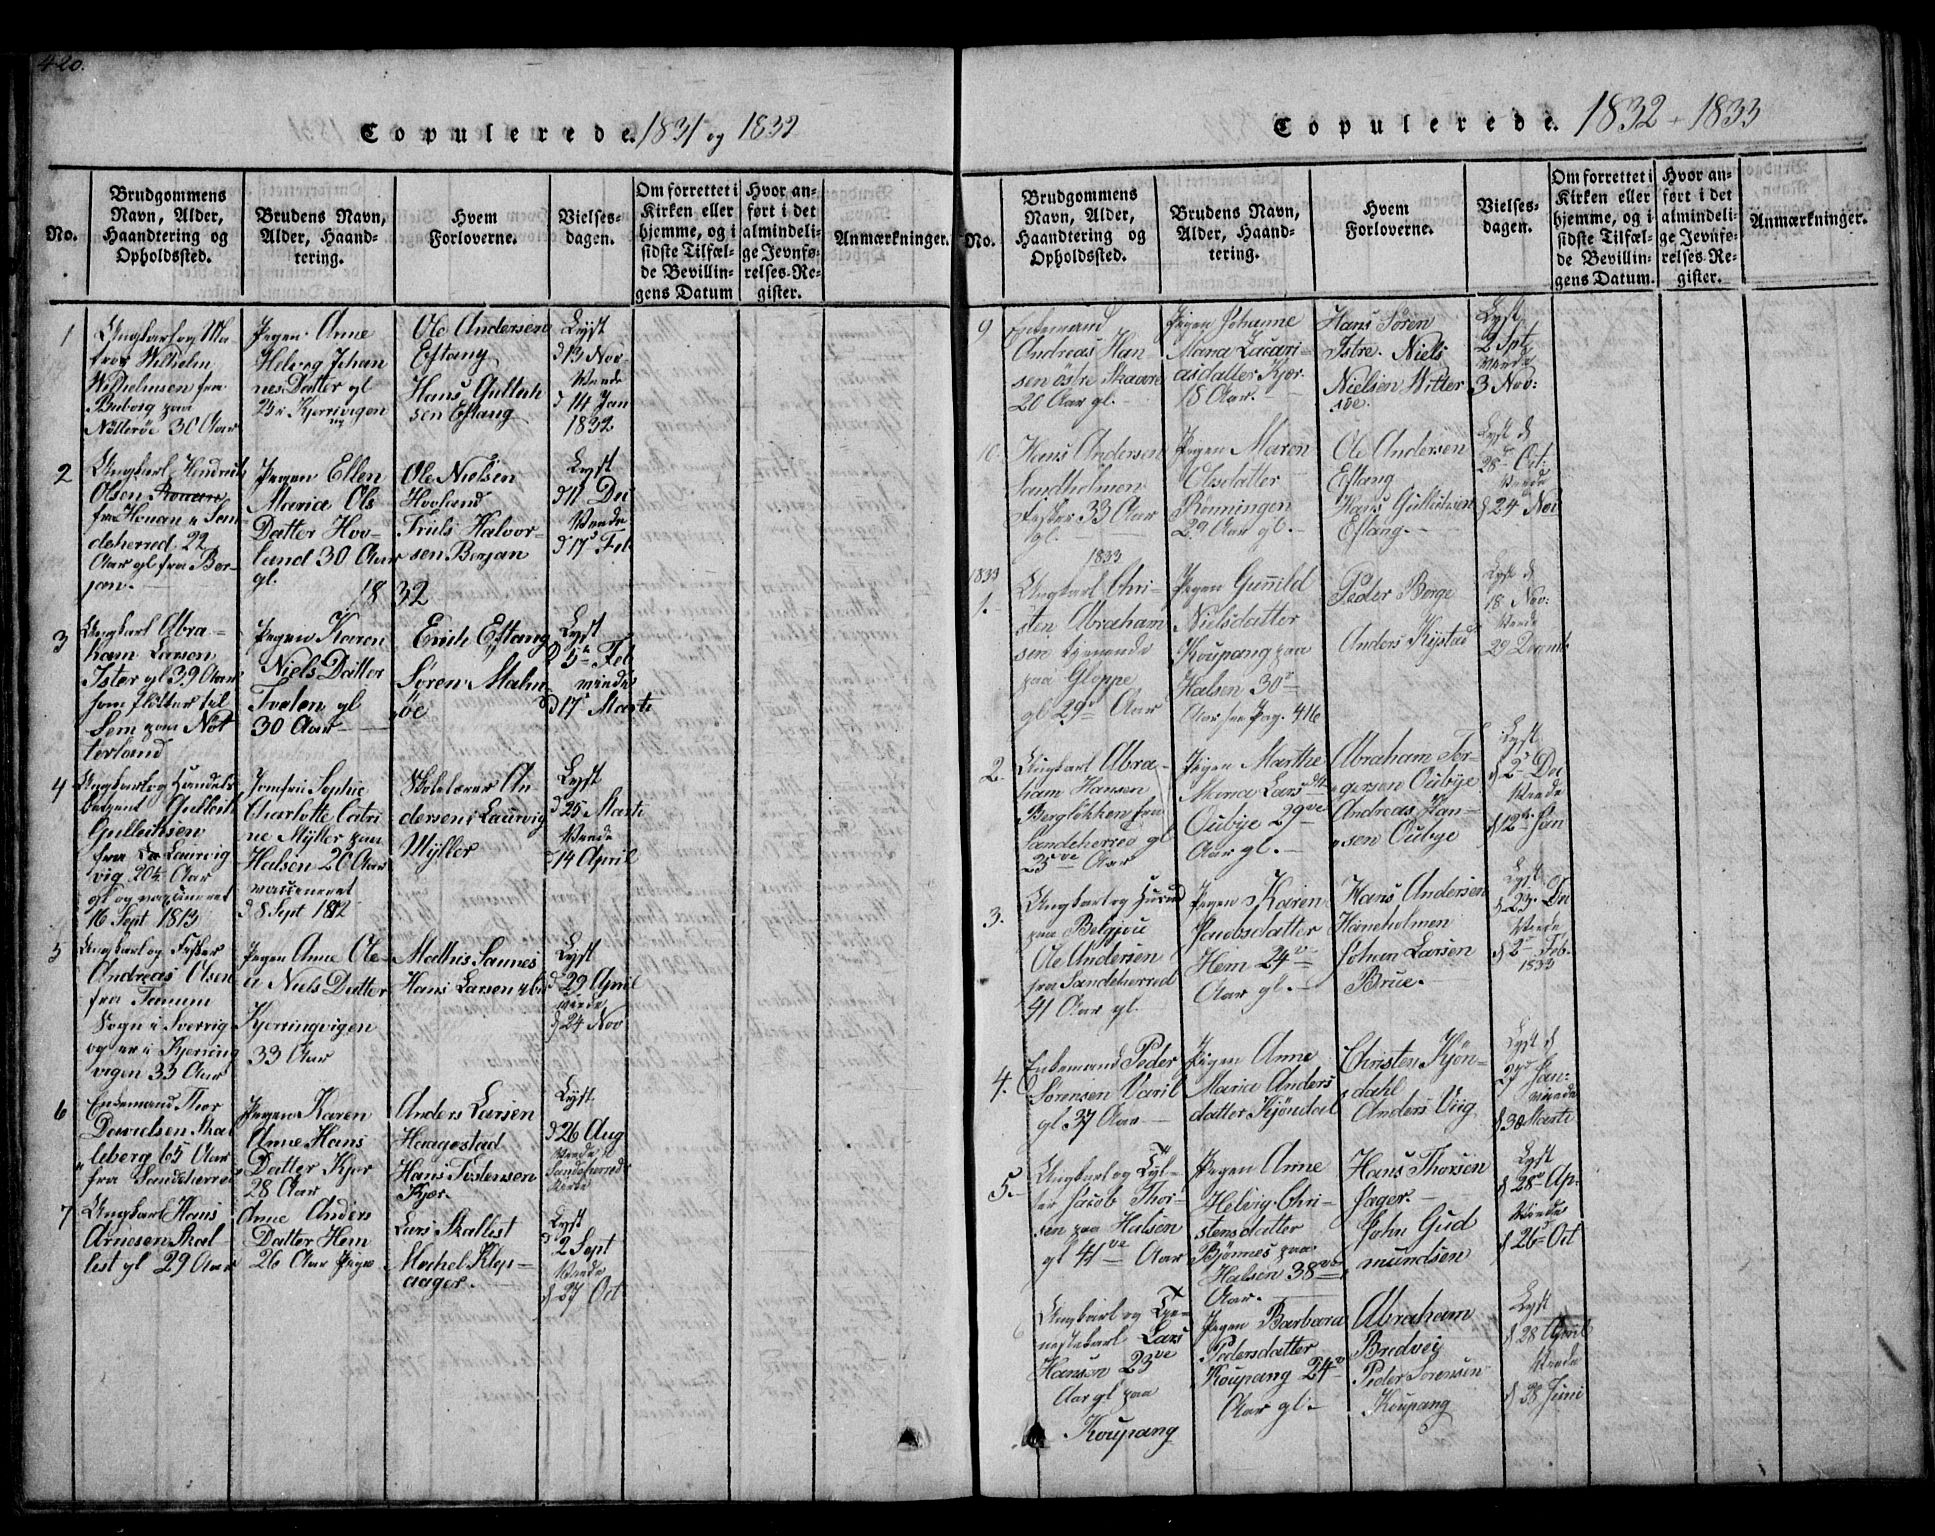 420.
Copulerede. 1831 og 1832
No.
Brudgommens Navn, Alder, Haandtering og Opholdssted.
Brudens Navn, Alder, Haandtering.
Hvem Forloverne.
Vielsesdagen.
Om forrettet i Kirken eller hjemme, og i sidste Tilfælde Bevillingens Datum
Hvor anført i det almindelige Jevnførelses-Register.
Anmærkninger.
1
Ungkarl og Ma
tros Wilhelm
Wilhelmsen fra
Buberg paa
Nötteröe 30 Aar
Pigen Anne
Helvig Johan
nes Datter gl
25 i Kjerringvigen
Ole Andersen
Eftang
Hans Gullich
sen Eftang
Lyst
d 13 Nov
Viede
d 14 Jan
1832
2
Ungkarl Hendrich
Olsen
fra Honan i San
deherred 22
Aar gl fra Bor-
jan.
Pigen Ellen
Maria Ols
Datter Hov-
lund 30 Aar
gl.
Ole Nielsen
Hovland
Truls Halvor-
sen Borjan
Lyst
d 11 De
Viede
d 17 Feb
1832
3
Ungkarl Abra-
ham Larsen
Ister gl 39 Aar
som flötter til
Sem paa Nöt
terland
Pigen Karen
Niels Datter
Tveten gl
30 Aar
Erich Eftang
Sören Malm
öe
Lyst
d 5te Feb
viede
d 17 Marti
4
Ungkarl og Handels
betjent Gullich
Gulleiksen
fra La Laurvig
vig 20½ Aar
gl og vaccineret
16 Sept 1813
Jomfru Sophie
Charlotte Catri
ne Myller paa
Halsen 20 Aar
vaccineret
d 8 Sept 1812
Skolelærer An
dersen i Laurvig
Myller
Lyst
d 25 Marti
Viede
14 April
5
Ungkarl og Fisker
Andreas Olsen
fra Tanum
Sogn i Sverrig
og er i Kjerring
vigen 33 Aar
Pigen Anne Ole-
a Niels Datter
Kjerringvigen
33 Aar
Mathis Sannes
Hans Larsen ibid
Lyst
d 29 April
viede
d 24 Nov
6
Enkemand Thor
Davidsen Skal
leberg 65 Aar
fra Sandeherred
Pigen Karen
Anne Hans
Datter Kjær
28 Aar
Anders Larsen
Haagestad
Hans Tostensen
Kjær.
Lyst
d 26 Aug
Viede i
Sandeherreds
Kirke
7
Ungkarl Hans
Arnesen Skal-
lest gl 29 Aar
Anne Anders
Datter Hem
26 Aar Pige
Lars Skallest
Mechel Klep-
aager.
Lyst
d 2 Sept
Viede
d 27 Oct
Copulerede. 1832 - 1833
No.
Brudgommens Navn, Alder, Haandtering og Opholdssted.
Brudens Navn, Alder, Haandtering.
Hvem Forloverne.
Vielsesdagen.
Om forrettet i Kirken eller hjemme, og i sidste Tilfælde Bevillingens Datum.
Hvor anført i det almindelige Jevnførelses-Register.
Anmærkninger.
9
Enkemand
Andreas Han
sen östre Skaare
20 Aar gl.
Pigen Johanne
Maria Zacari-
asdatter Kjær
18 Aar.
Hans Sören
Istre. Niels
Nielsen Witter
söe.
Lyst
2 Spt
viede
3 Nov:
10.
Hans Andersen
Sandholmen
Fisker 33 Aar
gl.
Pigen Maren
Olsdatter
Rönningen
29 Aar gl.
Ole Andersen
Eftang
Hans Gullichsen
Eftang.
Lyst d
28de Oct:
Viede
d 24 Nov
1833
1833
1.
Ungkarl Chri-
sten Abraham
sen tjenende
paa Gloppe
gl 29 Aar
Pigen Gunild
Nielsdatter
Koupang paa
Halsen 30
Aar see Pag. 416
Peder Berge
Anders Kjistad
Lyst d
18 Nov:
Viede
29 Decemb
2.
Ungkarl Abra-
ham Hansen
Berglökken fra
Sandeherred gl
25ve Aar
Pigen Marthe
Maria Larsdtt
Oubye 29ve
Aar gl.
Abraham Tor-
gersen Oubye
Andreas Han-
sen Oubye
Lyst
d 2 Dec
Viede
d 12te Jan
3.
Ungkarl og Huusmd
paa Belgjou
Ole Andersen
fra Sandeherred
41 Aar gl.
Pigen Karen
Jacobsdatter
Hem 24ve
Aar gl.
Hans Andersen
Haneholmen
Johan Larsen
Brue.
Lyst
d 23 De
Viede
d 2 Feb.
1833
4.
Enkemand Peder
Sörensen Varil
gl 37 Aar
Pigen Anne
Maria Anders
datter Kjöndal
Christen Kjön-
dahl
Anders Viig
Lyst d
27 Jan:
viede
d 30 Marti
5.
Ungkarl og Tyt-
ter Jacob Thor-
sen paa Halsen
gl 41ve Aar
Pigen Anne
Helvig Chri-
stensdatter
Bjönnes paa
Halsen 38ve
Aar.
Hans Thorsen
Jager.
John Gud
mundsen
Lyst
d 28 Ap-
Viedes
d 26 Oct
6
Ungkarl og Tje-
nestekarl Lars
Hansen 23ve
Aar gl paa
Koupang
Pigen Barbara
Pedersdatter
Koupang 24
Aar gl.
Abraham
Bredvej
Peder Sörensen
Koupang
Lyst
d 28 April
Viede
d 28 Juni